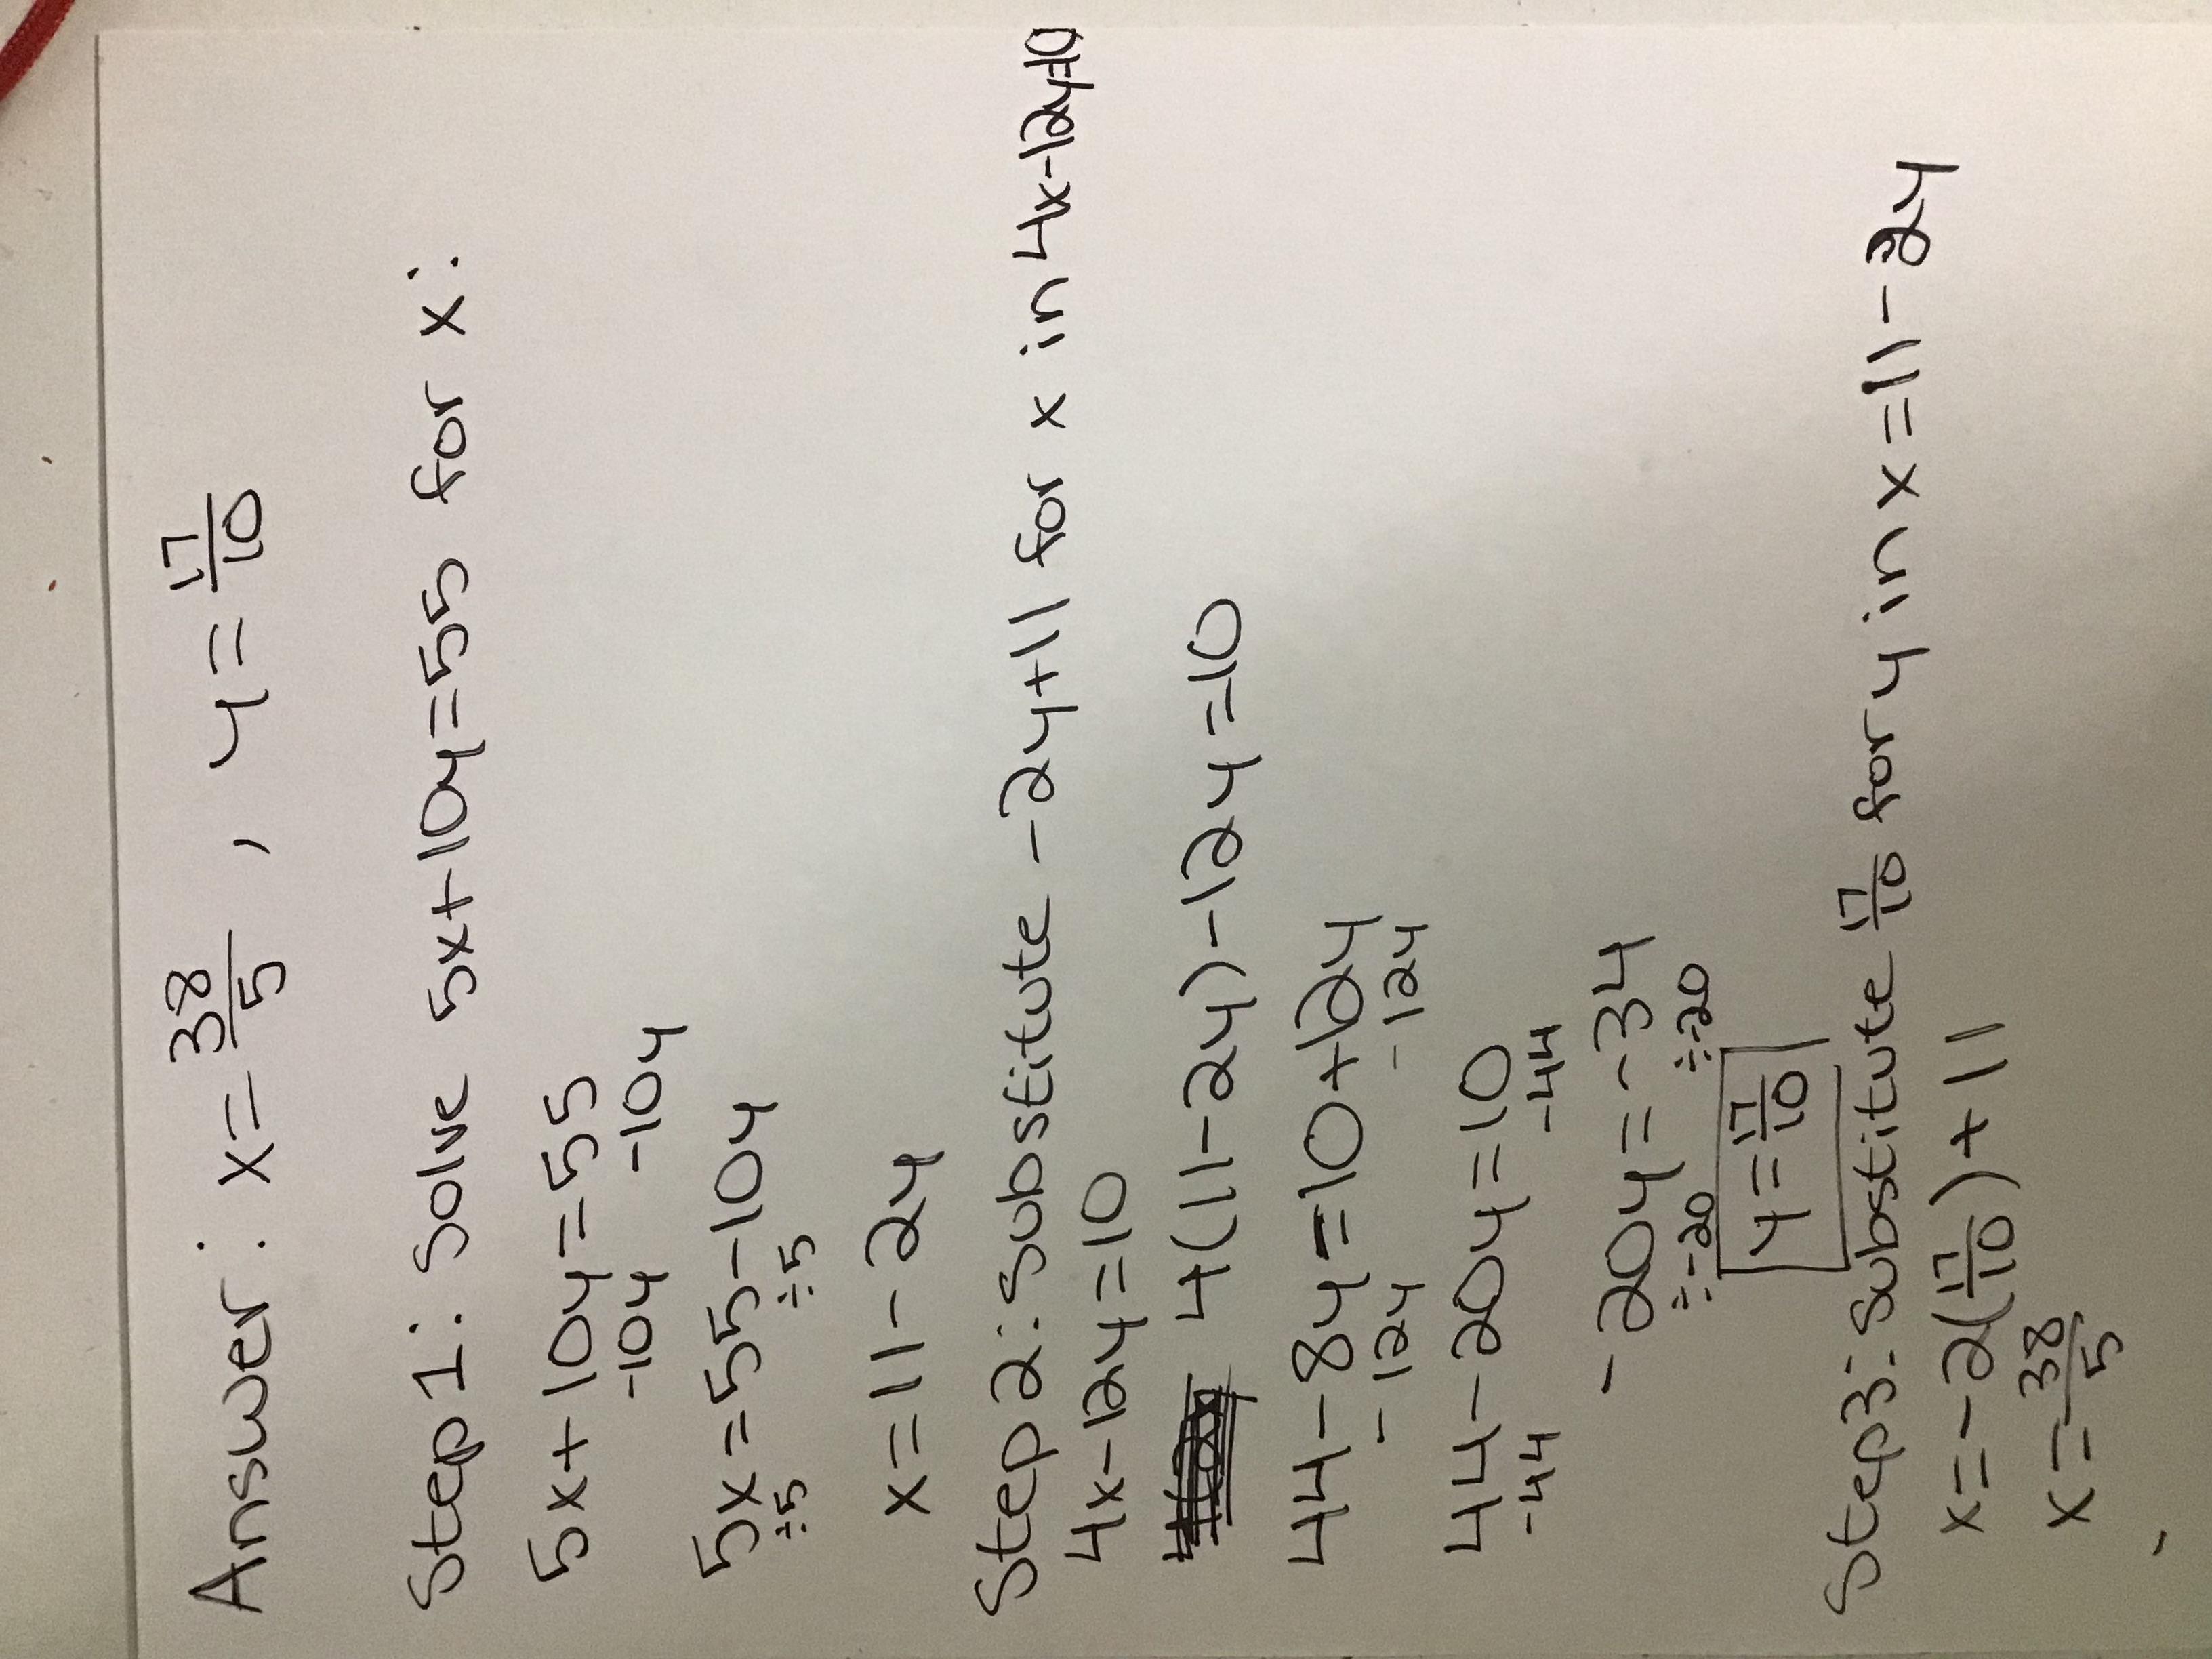 Answer: x=38/5, y=17/10
Step 1: Solve 5x+10y=55 for x:
5x+10y=55
-10y -10y
5x=55-10y
÷5 ÷5
x=11-2y
Step 2: Substitute -2y+11 for x in 4x-12y=10
4x-12y=10
4(11-2y)-12y=10
44-8y=10+12y
-12y -12y
44-20y=10
-44 -44
-20y=-34
÷-20 ÷-20
y=17/10
Step 3: Substitute 17/10 for y in x=11-2y
x=-2(17/10)+11
x=38/5